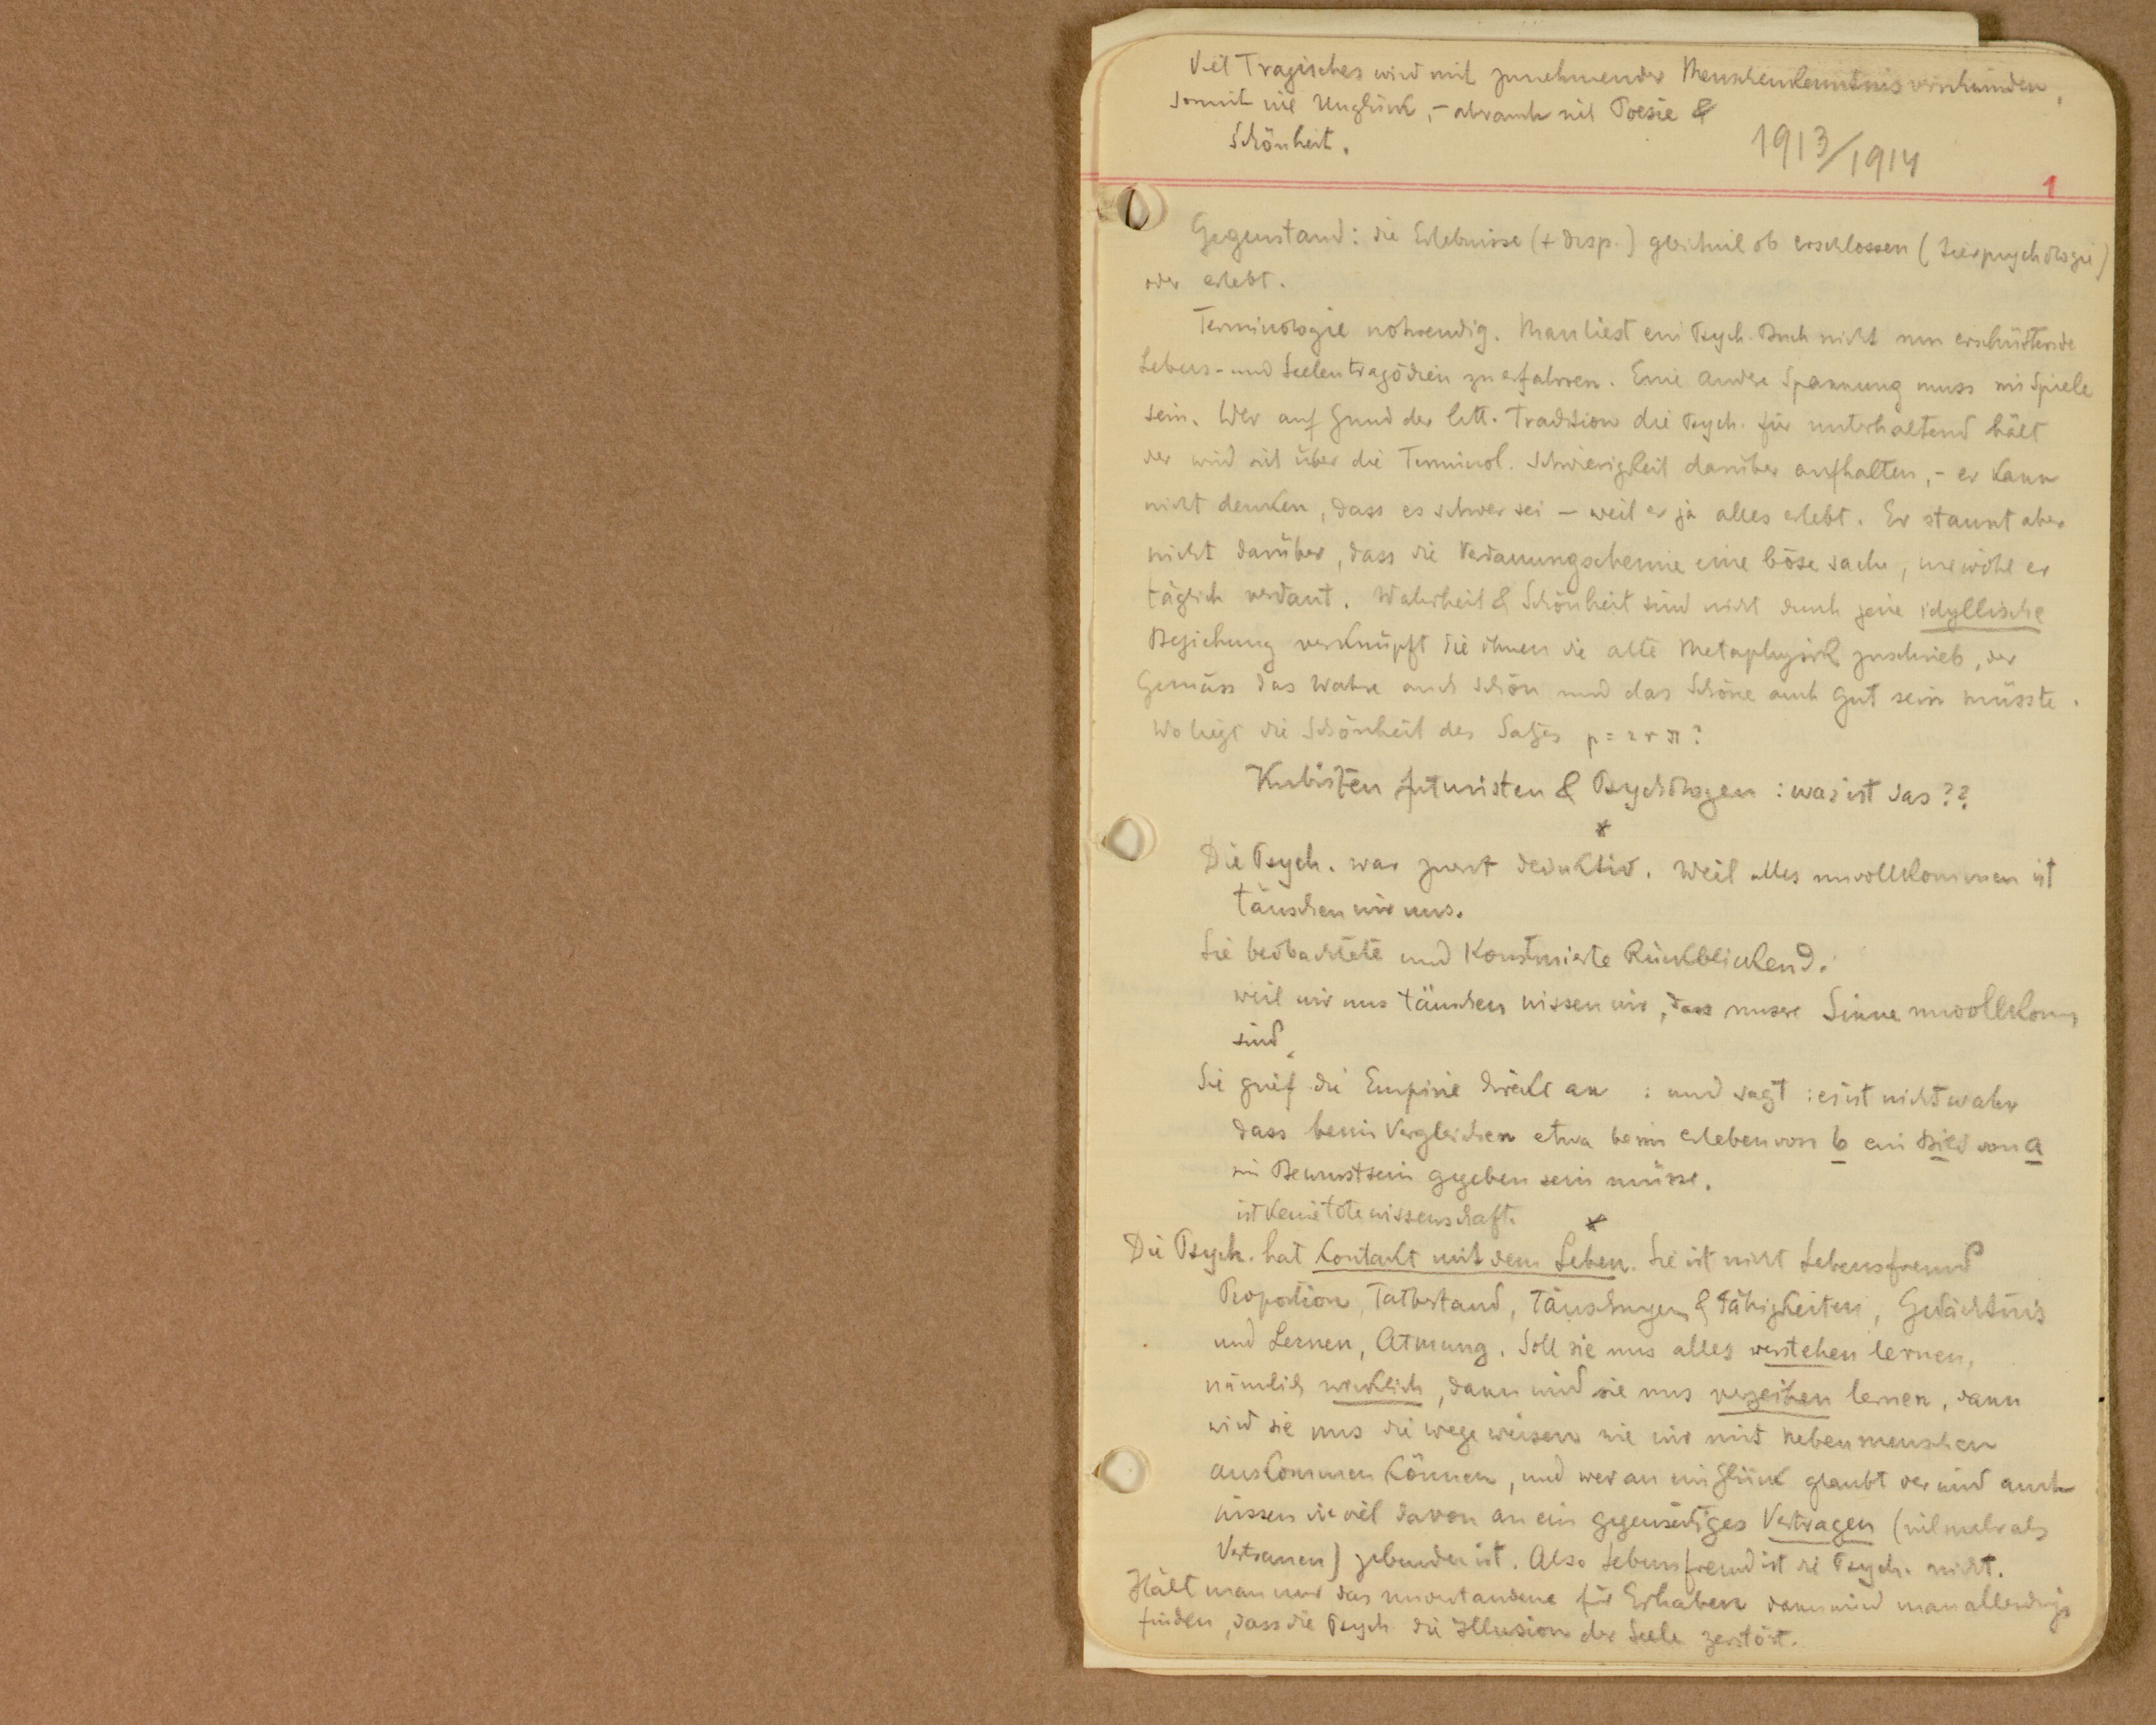 Viel Tragisches wird mit zunehmender Menschenkenntnis verschwinden,
somit viel Unglück, - aber auch viel Poesie &
Schönheit.
1913/1914
1
Gegenstand: die Erlebnisse (+ Disp.) gleichviel ob erschlossen (Tierpsychologie)
oder erlebt.
Terminologie notwendig. Man liest ein Psych. Buch nicht um erschütternde
Lebens- und Seelentragödien zu erfahren. Eine andre Spannung muss im Spiele
sein. Wer auf Grund der litt. Tradition die Psych. für unterhaltend hält
der wird sich über die Terminol. Schwierigkeit darüber aufhalten, - er kann
nicht denken, dass es schwer sei - weil er ja alles erlebt. Er staunt aber
nicht darüber, dass die Verdauungschemie eine böse Sache, obwohl er
täglich verdaut. Wahrheit & Schönheit sind nicht durch jene idyllische
Beziehung verknüpft die ihnen die alte Metaphysik zuschrieb, der
Gemäss das Wahre auch schön und das Schöne auch gut sein müsste.
Wo liegt die Schönheit des Satzes p = 2 r π?
Kubisten Futuristen & Psychologen : was ist das??
*
Die Psych. war zuerst deduktiv. Weil alles unvollkommen ist
täuschen wir uns.
Sie beobachtete und Konstruierte Rückblickend.
weil wir uns täuschen wissen wir, dass unsere Sinne unvollkom
sind.
Sie grief die Empirie direkt an : und sagt : es ist nicht wahr
dass beim Vergleichen etwa beim Erleben von b ein Bild von a
im Bewusstsein gegeben sein müsse.
ist keine tote Wissenschaft.
*
Die Psych. hat Kontakt mit dem Leben. Sie ist nicht Lebensfremd
Proportion, Tatbestand, Täuschungen & Fähigkeiten, Gedächtnis
und Lernen, Atmung. Soll sie uns alles verstehen lernen,
nämlich wirklich, dann wird sie uns verzeihen lernen, dann
wird sie uns die Wege weisen wie wir mit Nebenmenschen
auskommen können, und wer an ein Glück glaubt der wird auch
wissen wie viel davon an ein gegenseitiges Vertragen (viel mehr als
Vertrauen) gebunden ist. Also Lebensfremd ist die Psych. nicht.
Hält man nur das unverstandene für Erhaben dann wird man allerdings
finden, dass die Psych die Illusion der Seele zerstört.